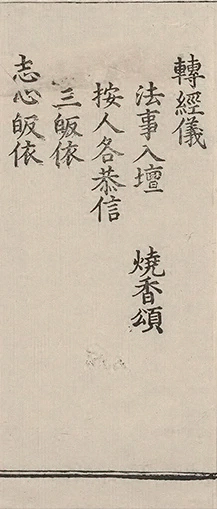 轉經儀
法事入壇 燒香頌
按人各恭信
三皈依
志心皈依